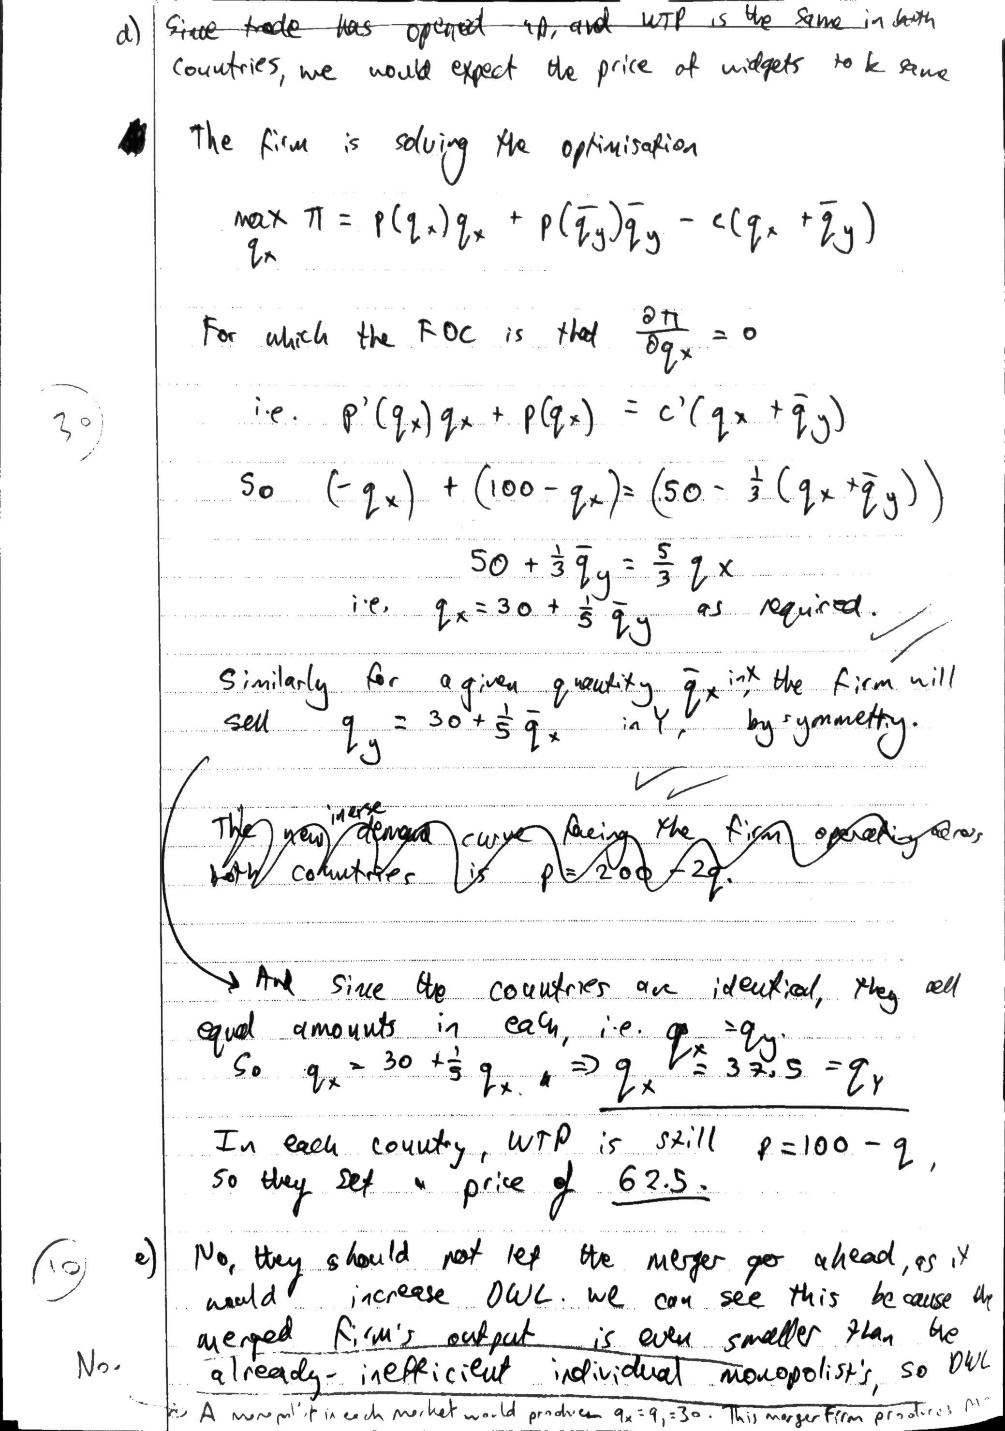 d) Since trade has opened up, and WTP is the same in both
countries, we would expect the price of widgets to be same
The firm is solving the optimisation
max π = p(qₓ)qₓ + p(q̄_y)q̄_y - c(qₓ + q̄_y)
qₓ
For which the FOC is that ∂π/∂qₓ = 0
30
i.e. p'(qₓ)qₓ + p(qₓ) = c'(qₓ + q̄_y)
So (-qₓ) + (100 - qₓ) = (50 - 1/3 (qₓ + q̄_y))
50 + 1/3 q̄_y = 5/3 qₓ
i.e. qₓ = 30 + 1/5 q̄_y as required.
Similarly for a given quantity q̄ₓ in X, the firm will
sell q_y = 30 + 1/5 q̄ₓ in Y, by symmetry.
The new inverse demand curve facing the firm operating across
both countries is p = 200 - 2q.
And since the countries are identical, they sell
equal amounts in each, i.e. qₓ = q_y.
So qₓ = 30 + 1/5 qₓ. ⇒ qₓ = 37.5 = q_Y
In each country, WTP is still p = 100 - q,
so they set a price of 62.5.
10
e) No, they should not let the merger go ahead, as it
would increase DWL. We can see this because the
merged firm's output is even smaller than the
No. already-inefficient individual monopolist's, so DWL
A monopolist in each market would produce qₓ = q_y = 30. This merger firm produces